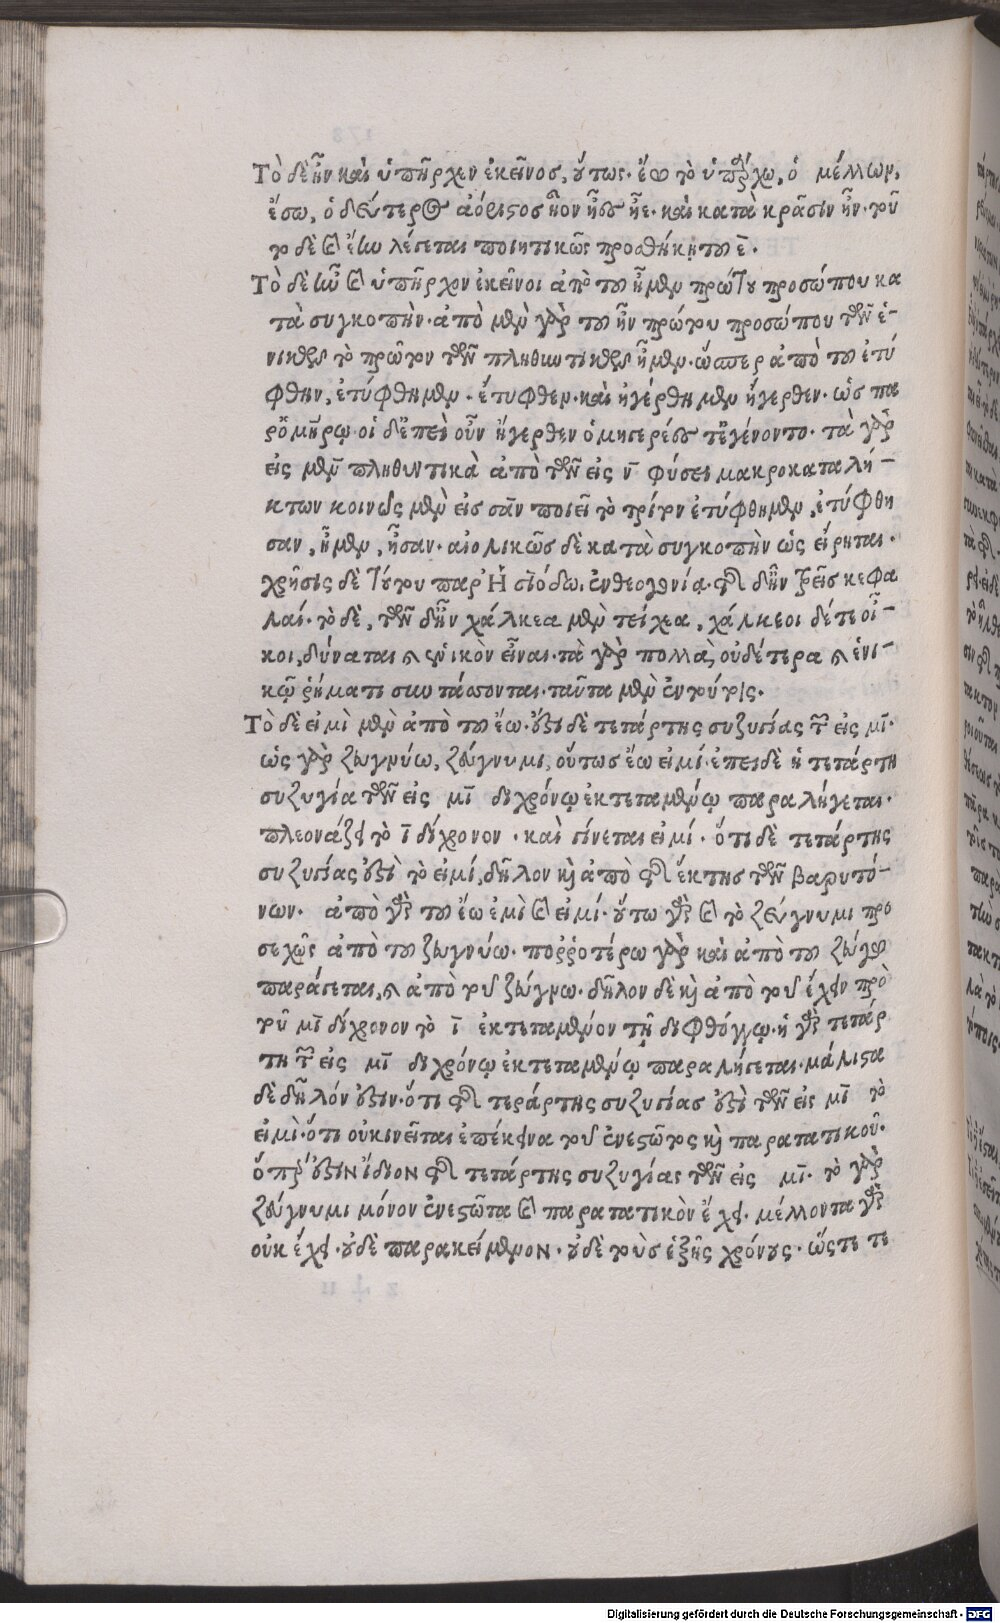 Τὸ δὲ ἦν καὶ ὑπῆρχεν ἐκεῖνος, οὕτως. ἔω τὸ ὑπάρχω, ὁ μέλλων,
ἔσω, ὁ δεύτερος ἀόριστος ἦον ἦες ἦε. καὶ κατὰ κρᾶσιν ἦν. τοῦ
το δὲ καὶ ἔην λέγεται ποιητικῶς προσθήκῃ τοῦ ε̄.
Τὸ δὲ ἦν καὶ ὑπῆρχον ἐκεῖνοι ἀπὸ τοῦ ἦμεν πρώτου προσώπου κα
τὰ συγκοπήν. ἀπὸ μὲν γὰρ τοῦ ἦν πρώτου προσώπου τῶν ἑ-
νικῶν τὸ πρῶτον τῶν πληθυντικῶν ἦμεν. ὥσπερ ἀπὸ τοῦ ἐτύ
φθην, ἐτύφθημεν. ἔτυφθεν. καὶ ἠγέρθημεν ἤγερθεν. ὡς πα
ρ' ὁμήρῳ. οἱ δ' ἐπεὶ οὖν ἤγερθεν ὁμηγερέες τ' ἐγένοντο. τὰ γὰρ
εἰς μεν πληθυντικὰ ἀπὸ τῶν εἰς ν̄ φύσει μακροκαταλή-
κτων κοινῶς μὲν εἰς σαν ποιεῖ τὸ τρίτον ἐτύφθημεν, ἐτύφθη
σαν, ἦμεν, ἦσαν. αἰολικῶς δὲ κατὰ συγκοπὴν ὡς εἴρηται.
χρῆσις δὲ τούτου παρ' Ἡσιόδῳ. ἐν θεογονίᾳ. τῆς δ' ἦν τρεῖς κεφα
λαί. τὸ δὲ, τῶν δ' ἦν χάλκεα μὲν τείχεα, χάλκεοι δέ τε οἶ-
κοι, δύναται καὶ ἑνικὸν εἶναι. τὰ γὰρ πολλὰ οὐδέτερα καὶ ἑνι-
κῷ ῥήματι συντάσσονται. ταῦτα μὲν ἐν τούτοις.
Τὸ δὲ εἰμὶ μὲν ἀπὸ τοῦ ἔω. ἐστὶ δὲ τετάρτης συζυγίας τῶν εἰς μῑ.
ὡς γὰρ ζευγνύω, ζεύγνυμι, οὕτως ἔω εἰμί. ἐπειδὲ ἡ τετάρτη
συζυγία τῶν εἰς μῑ διχρόνῳ ἐκτεταμένῳ παραλήγεται.
πλεονάζει τὸ ῑ δίχρονον. καὶ γίνεται εἰμί. ὅτι δὲ τετάρτης
συζυγίας ἐστὶ τὸ εἰμί, δῆλον καὶ ἀπὸ τῆς ἕκτης τῶν βαρυτό-
νων. ἀπὸ γὰρ τοῦ ἔω ἐμὶ καὶ εἰμί. οὕτω γὰρ καὶ τὸ ζεύγνυμι προ
σεχῶς ἀπὸ τοῦ ζευγνύω. πορρωτέρω γὰρ καὶ ἀπὸ τοῦ ζεύγω
παράγεται, καὶ ἀπὸ τοῦ ζεύγνω. δῆλον δὲ καὶ ἀπὸ τοῦ ἔχειν πρὸ
τοῦ μῑ δίχρονον τὸ ῑ ἐκτεταμένον τῇ διφθόγγῳ. ἡ γὰρ τετάρ
τη τῶν εἰς μῑ διχρόνῳ ἐκτεταμένῳ παραλήγεται. μάλιστα
δὲ δῆλόν ἐστιν. ὅτι τῆς τετάρτης συζυγίας ἐστὶ τῶν εἰς μῑ τὸ
εἰμὶ. ὅτι οὐ κινεῖται ἐπέκεινα τοῦ ἐνεστῶτος καὶ παρατατικοῦ.
ὅπερ ἐστὶν ἴδιον τῆς τετάρτης συζυγίας τῶν εἰς μῑ. τὸ γὰρ
ζεύγνυμι μόνον ἐνεστῶτα καὶ παρατατικὸν ἔχει. μέλλοντα γὰρ
οὐκ ἔχει. οὐδὲ παρακείμενον. οὐδὲ τοὺς ἑξῆς χρόνους. ὥστε τε
Digitalisierung gefördert durch die Deutsche Forschungsgemeinschaft - DFG